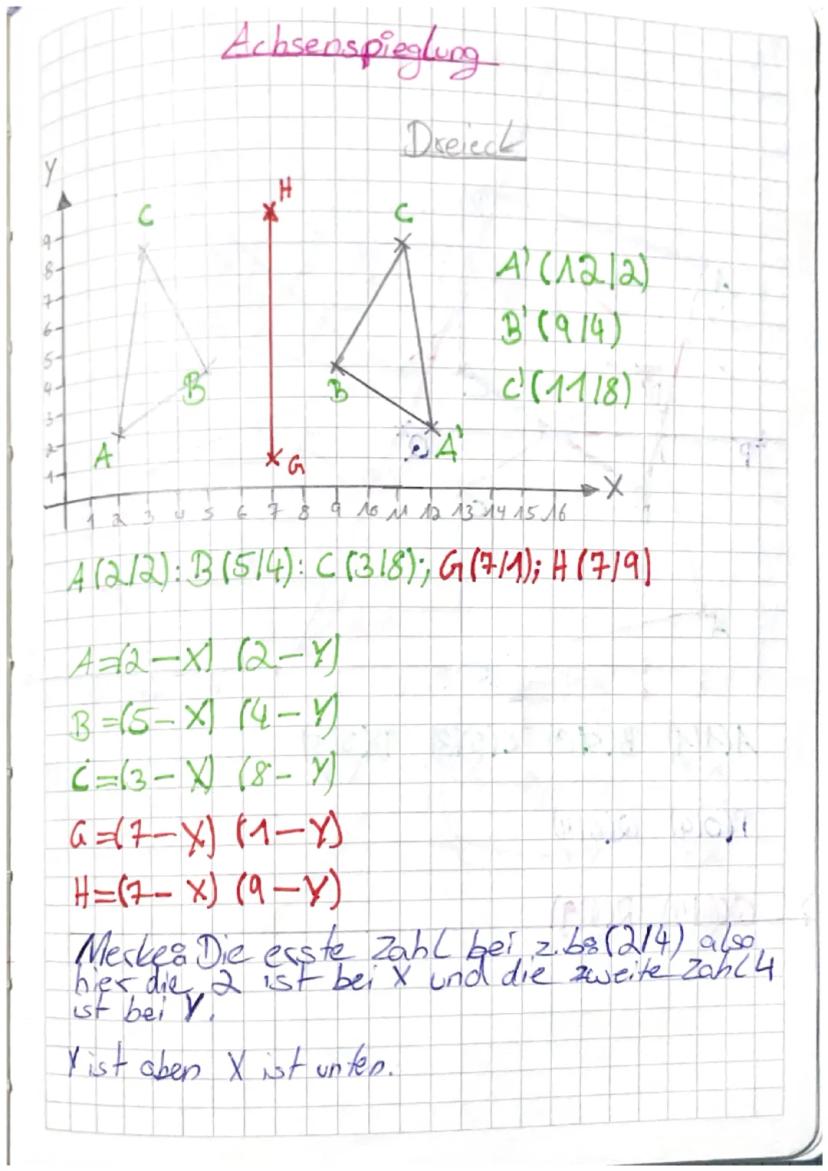 Achsenspieglung
Dreieck
Y
H
C
C
9
8
7
6
5
4
3
2
1
A'(12|2)
B'(9|4)
C'(11|8)
B
B
A
G
A'
X
1 2 3 4 5 6 7 8 9 10 11 12 13 14 15 16
A(2/2): B(5/4): C(3|8); G(7/1); H(7/9)
A=(2-X) (2-Y)
B=(5-X) (4-Y)
C=(3-X) (8-Y)
G=(7-X) (1-Y)
H=(7-X) (9-Y)
Merke: Die erste Zahl bei z.b: (2/4) also
hier die 2 ist bei X und die zweite Zahl 4
ist bei Y.
Y ist oben X ist unten.